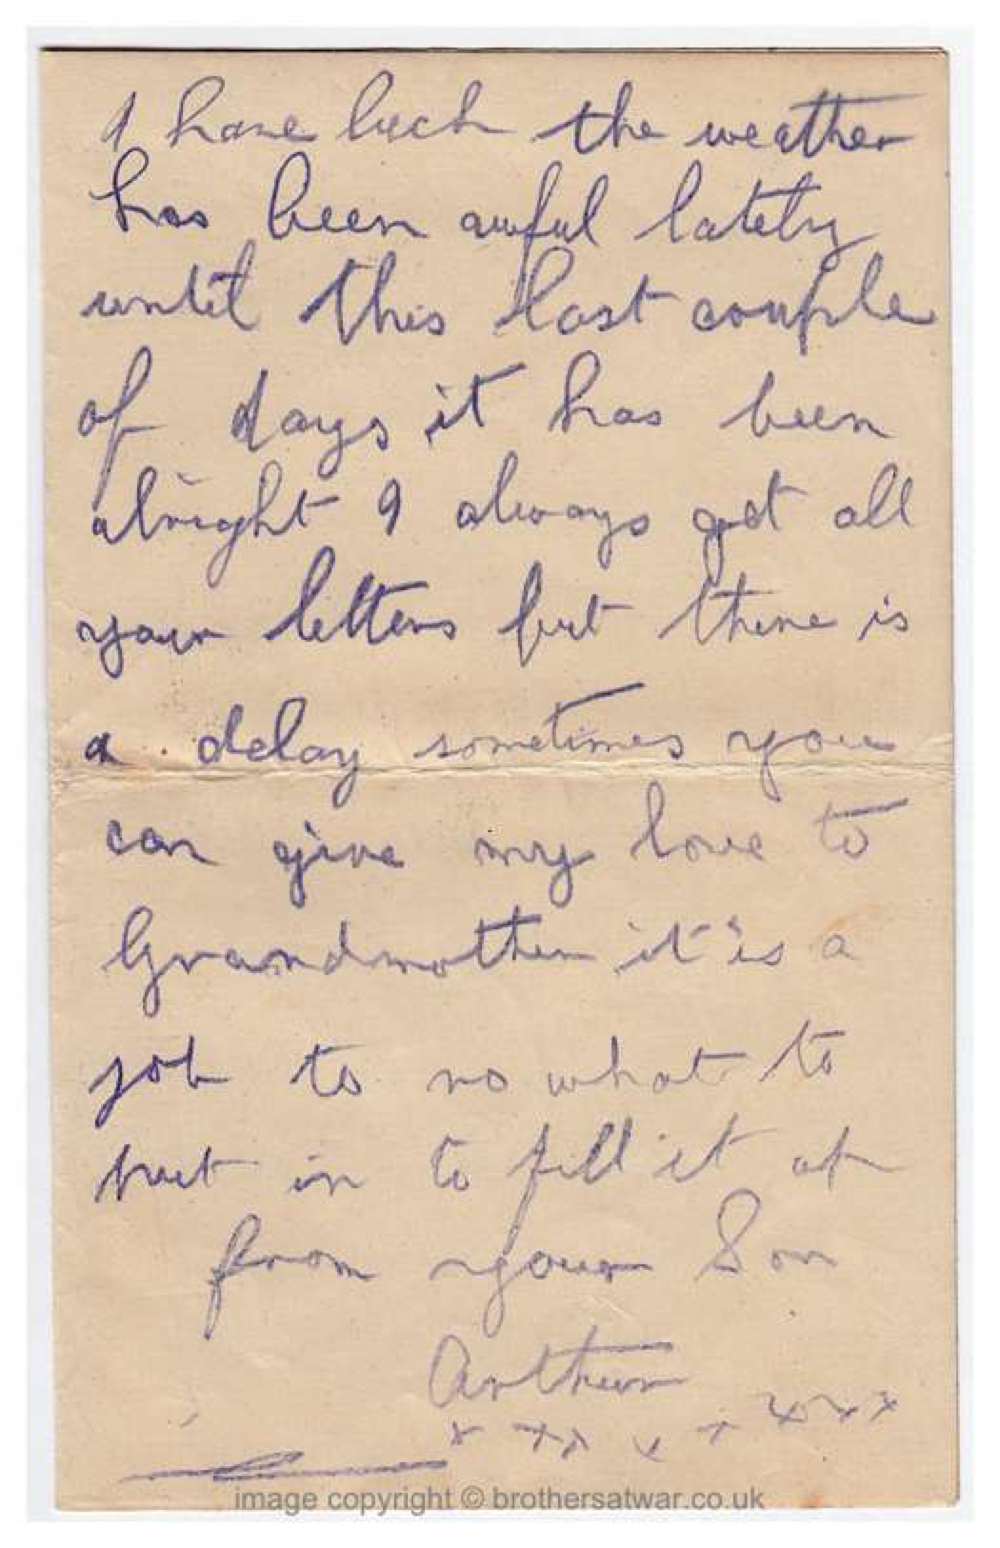 I have luck the weather
has been awful lately
until this last couple
of days it has been
alright I always get all
your letters but there is
a delay sometimes you
can give my love to
Grandmother it is a
job to no what to
put in to fill it up
from your Son
Arthur
x x x x x x x x x
image copyright © brothersatwar.co.uk